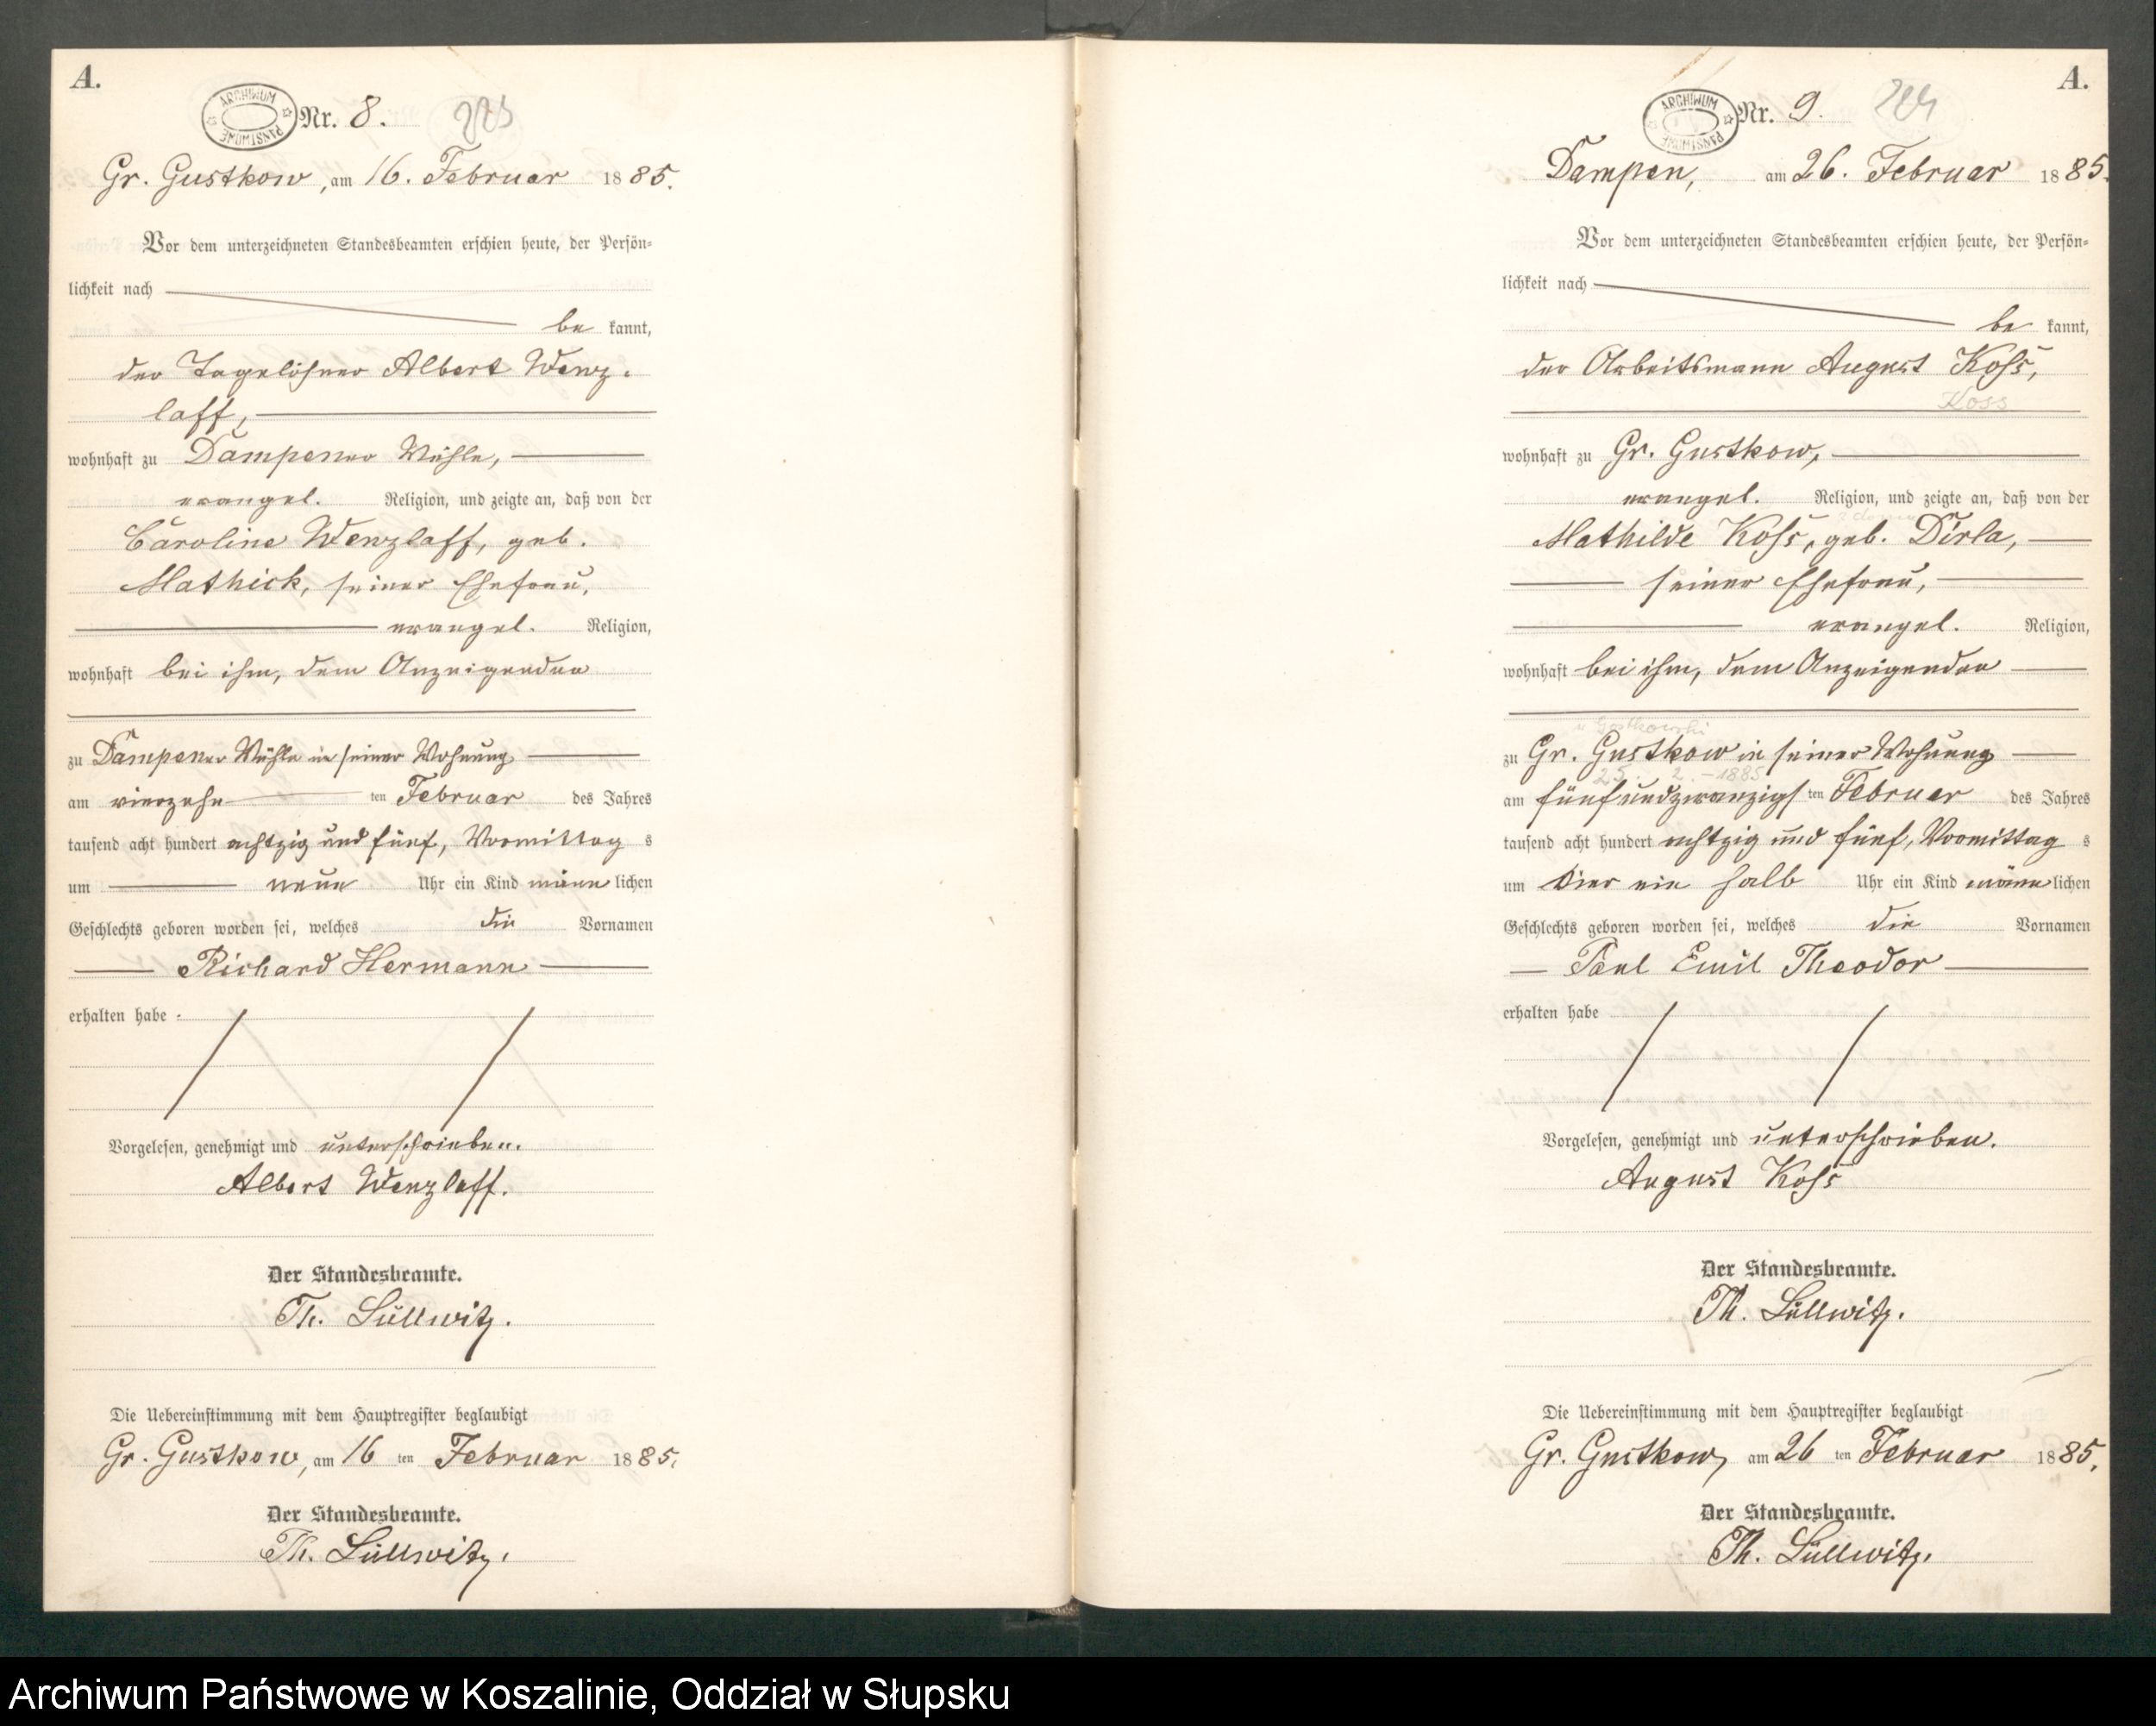 A.
ARCHIWUM PAŃSTWOWE
Nr. 8.
Gr. Gustkow, am 16. Februar 1885.
Vor dem unterzeichneten Standesbeamten erschien heute, der Persön-
lichkeit nach
be kannt,
der Tagelöhner Albert Wenz-
laff,
wohnhaft zu Dampener Mühle,
evangel. Religion, und zeigte an, daß von der
Caroline Wenzlaff, geb.
Mathick, seiner Ehefrau,
evangel. Religion,
wohnhaft bei ihm, dem Anzeigenden
zu Dampener Mühle in seiner Wohnung
am vierzehn ten Februar des Jahres
tausend acht hundert achtzig und fünf, Vormittag s
um neun Uhr ein Kind männ lichen
Geschlechts geboren worden sei, welches die Vornamen
Richard Hermann
erhalten habe.
Vorgelesen, genehmigt und unterschrieben.
Albert Wenzlaff.
Der Standesbeamte.
Th. Lüllwitz.
Die Uebereinstimmung mit dem Hauptregister beglaubigt
Gr. Gustkow, am 16 ten Februar 1885.
Der Standesbeamte.
Th. Lüllwitz.
A.
ARCHIWUM PAŃSTWOWE
Nr. 9.
Dampen, am 26. Februar 1885.
Vor dem unterzeichneten Standesbeamten erschien heute, der Persön-
lichkeit nach
be kannt,
der Arbeitsmann August Koß,
Koss
wohnhaft zu Gr. Gustkow,
evangel. Religion, und zeigte an, daß von der
Mathilde Koß, geb. Dirla,
seiner Ehefrau,
evangel. Religion,
wohnhaft bei ihm, dem Anzeigenden
zu Gr. Gustkow in seiner Wohnung
25. 2. - 1885
am fünfundzwanzigs ten Februar des Jahres
tausend acht hundert achtzig und fünf, Vormittag s
um vier ein halb Uhr ein Kind männ lichen
Geschlechts geboren worden sei, welches die Vornamen
Paul Emil Theodor
erhalten habe
Vorgelesen, genehmigt und unterschrieben.
August Koß
Der Standesbeamte.
Th. Lüllwitz.
Die Uebereinstimmung mit dem Hauptregister beglaubigt
Gr. Gustkow, am 26 ten Februar 1885.
Der Standesbeamte.
Th. Lüllwitz.
Archiwum Państwowe w Koszalinie, Oddział w Słupsku